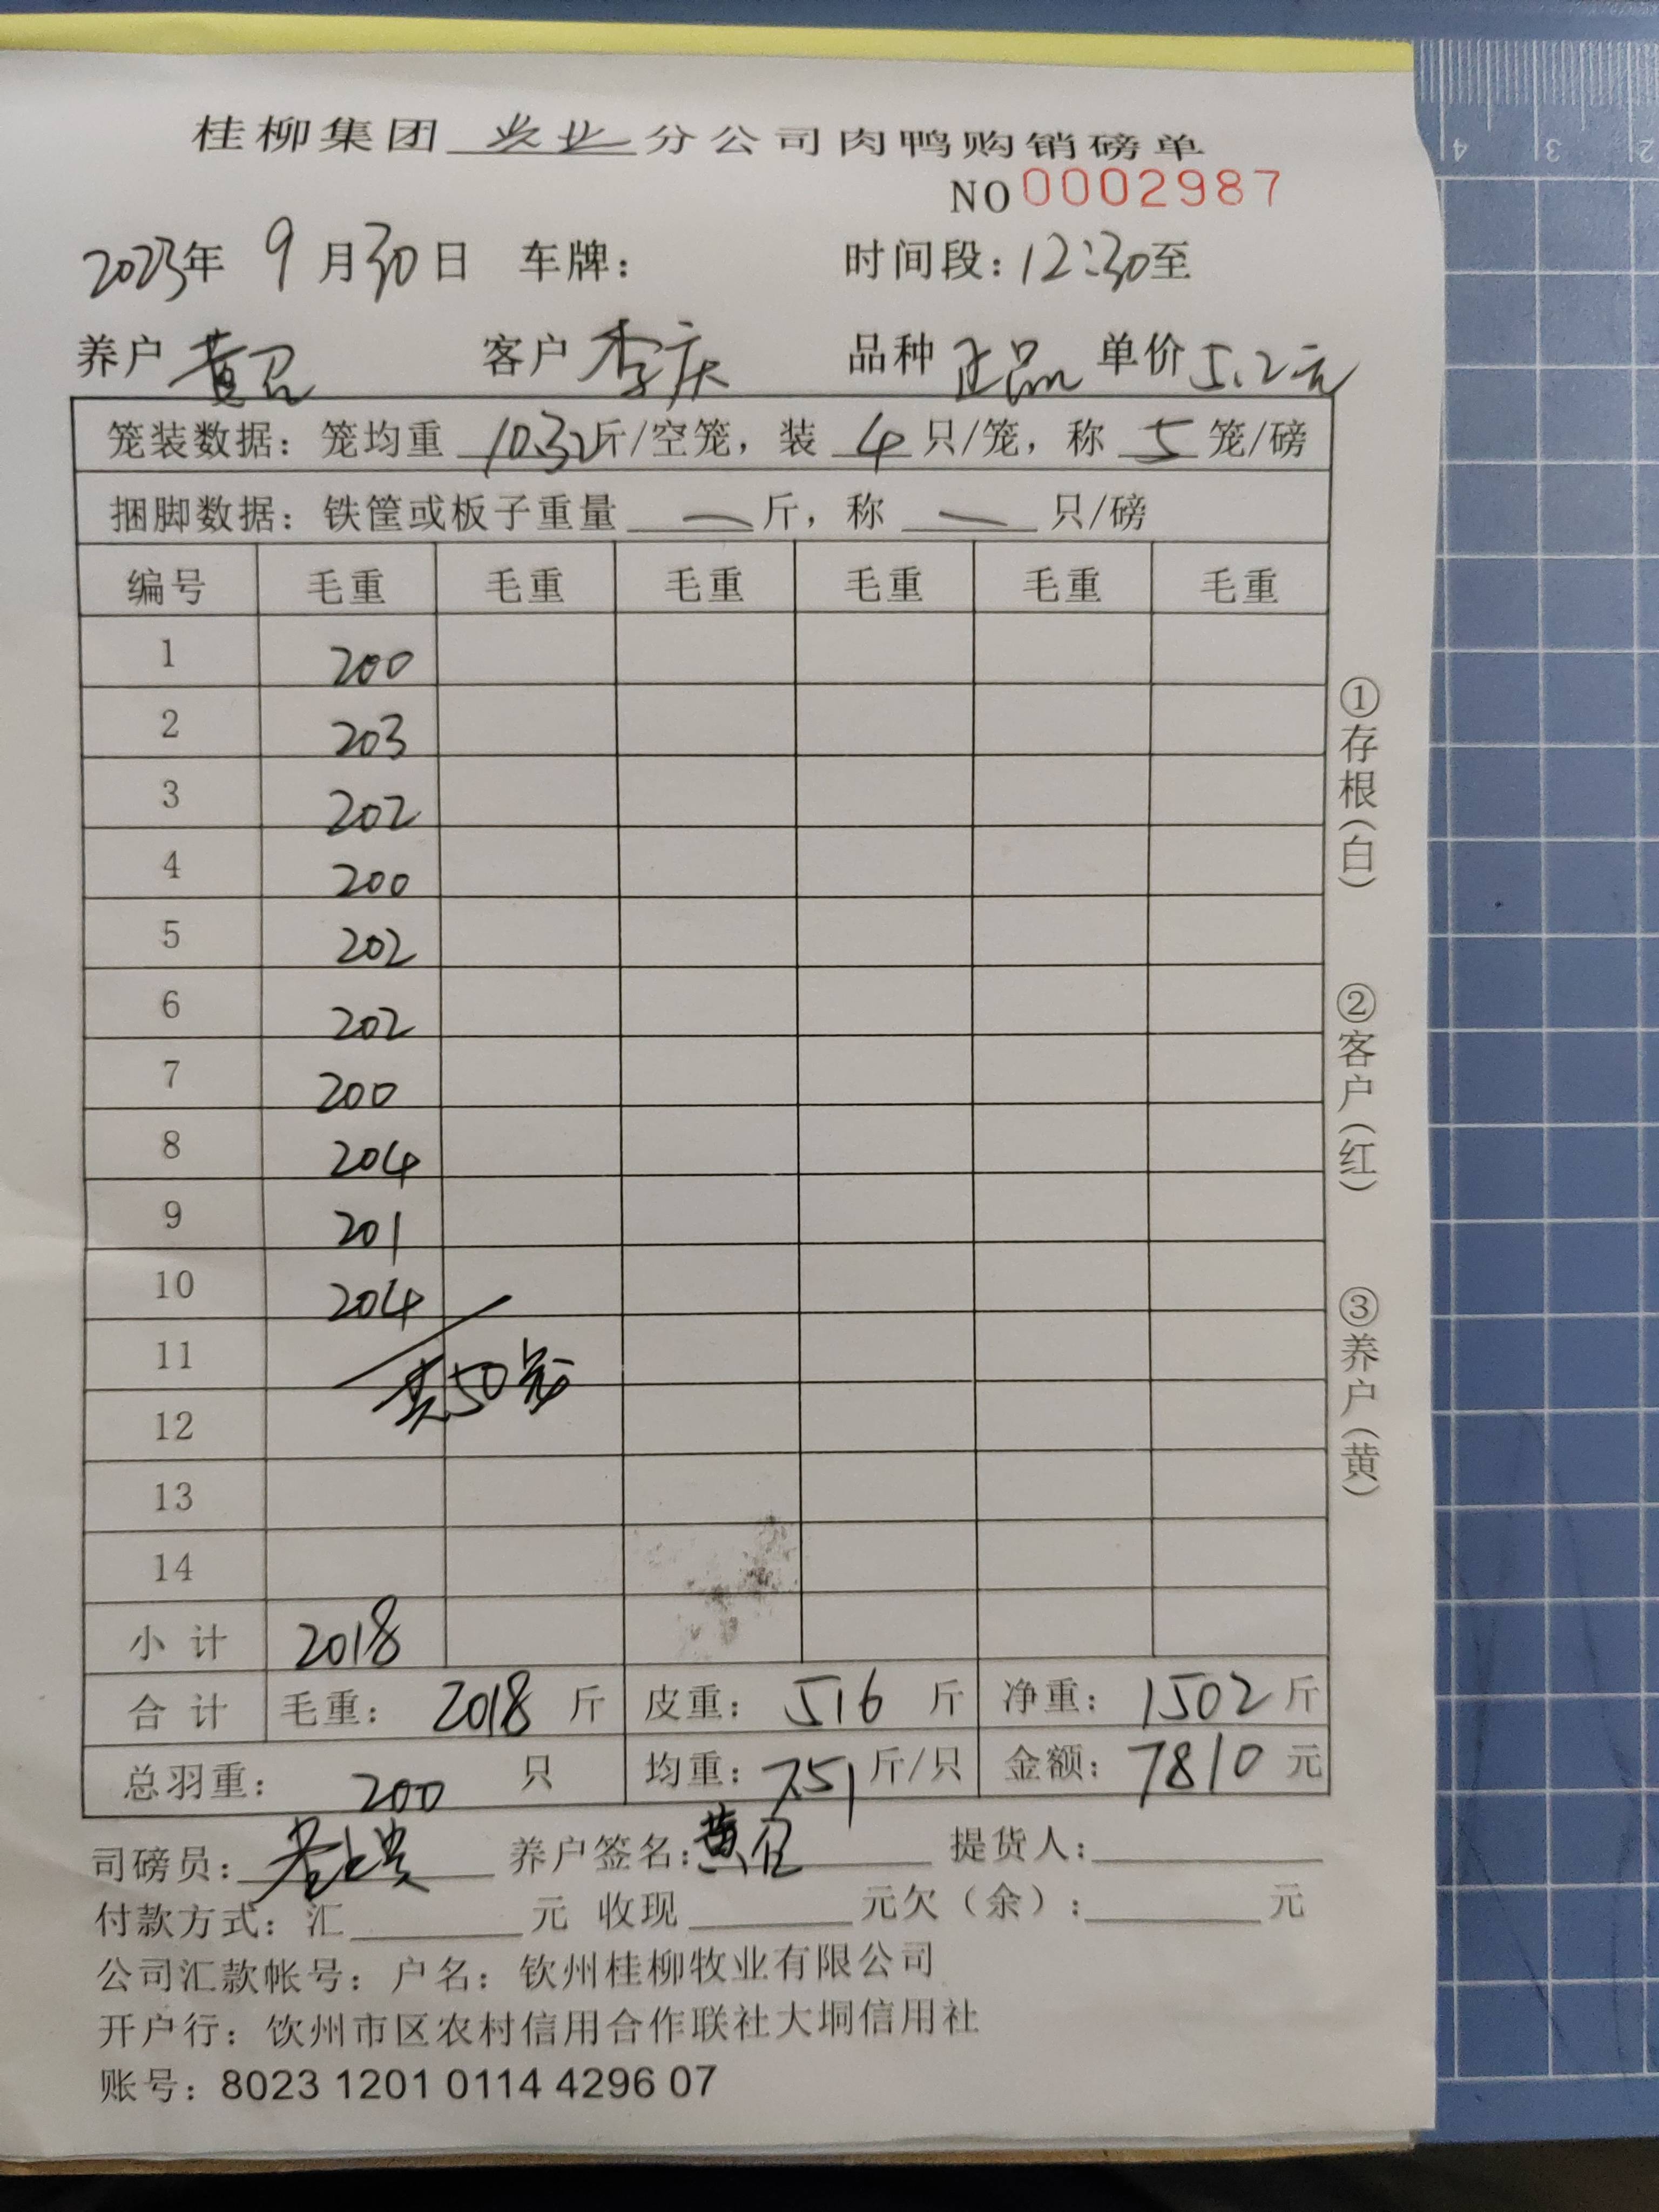 桂柳集团 兴业 分公司肉鸭购销磅单
NO 0002987
2023年 9月30日 车牌： 时间段：12:30至
养户 黄召 客户 李庆 品种 正品 单价 5.2元
笼装数据：笼均重 10.32斤/空笼，装 4 只/笼，称 5 笼/磅
捆脚数据：铁筐或板子重量 — 斤，称 — 只/磅
编号 毛重 毛重 毛重 毛重 毛重 毛重
1 200
2 203
3 202
4 200
5 202
6 202
7 200
8 204
9 201
10 204
11
共50笼
12
13
14
小计 2018
合计 毛重：2018 斤 皮重：516 斤 净重：1502 斤
总羽重：200 只 均重：7.51 斤/只 金额：7810 元
司磅员： 养户签名：黄召 提货人：
付款方式：汇 元 收现 元欠（余）： 元
公司汇款帐号：户名：钦州桂柳牧业有限公司
开户行：饮州市区农村信用合作联社大垌信用社
账号：8023 1201 0114 4296 07
①存根（白）
②客户（红）
③养户（黄）
4 3 2